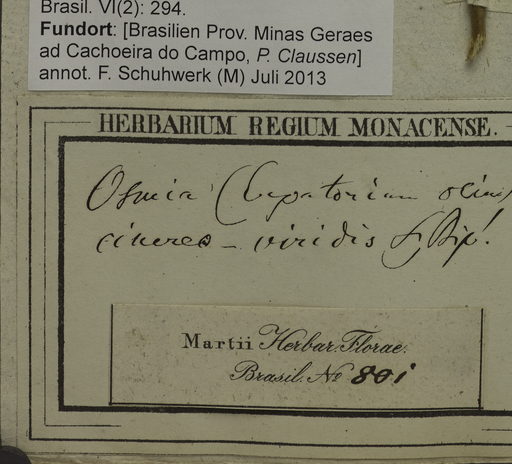 Brasil. VI(2): 294.
Fundort: [Brasilien Prov. Minas Geraes
ad Cachoeira do Campo, P. Claussen]
annot. F. Schuhwerk (M) Juli 2013
HERBARIUM REGIUM MONACENSE.
Osmia (Eupatorium olim)
cinereo-viridis Sch. Bip!
Martii Herbar. Florae.
Brasil. No 801